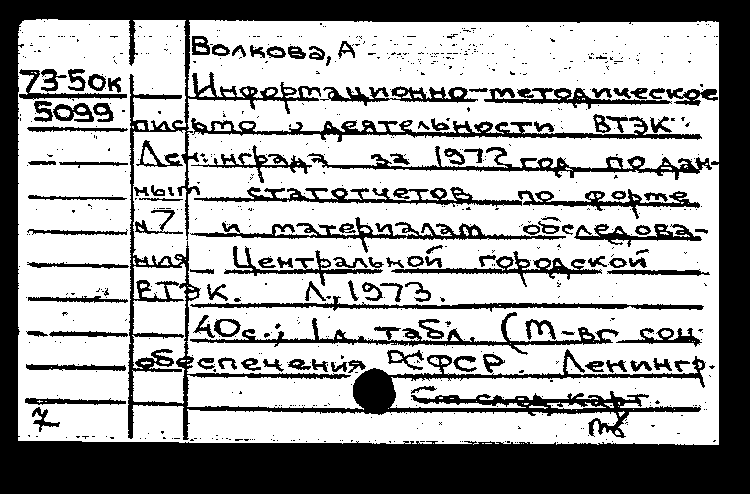 Волкова, А
73-50к Информационно-методическое
5099 письмо о деятельности ВТЭК
Ленинграда за 1972 год, по дан-
ным статотчетов по форме
№7 и материалам обследова-
ния Центральной городской
ВТЭК. Л., 1973.
40с.; 1 л. табл. (М-во соц.
обеспечения РСФСР. Ленингр.
См след. карт.
7